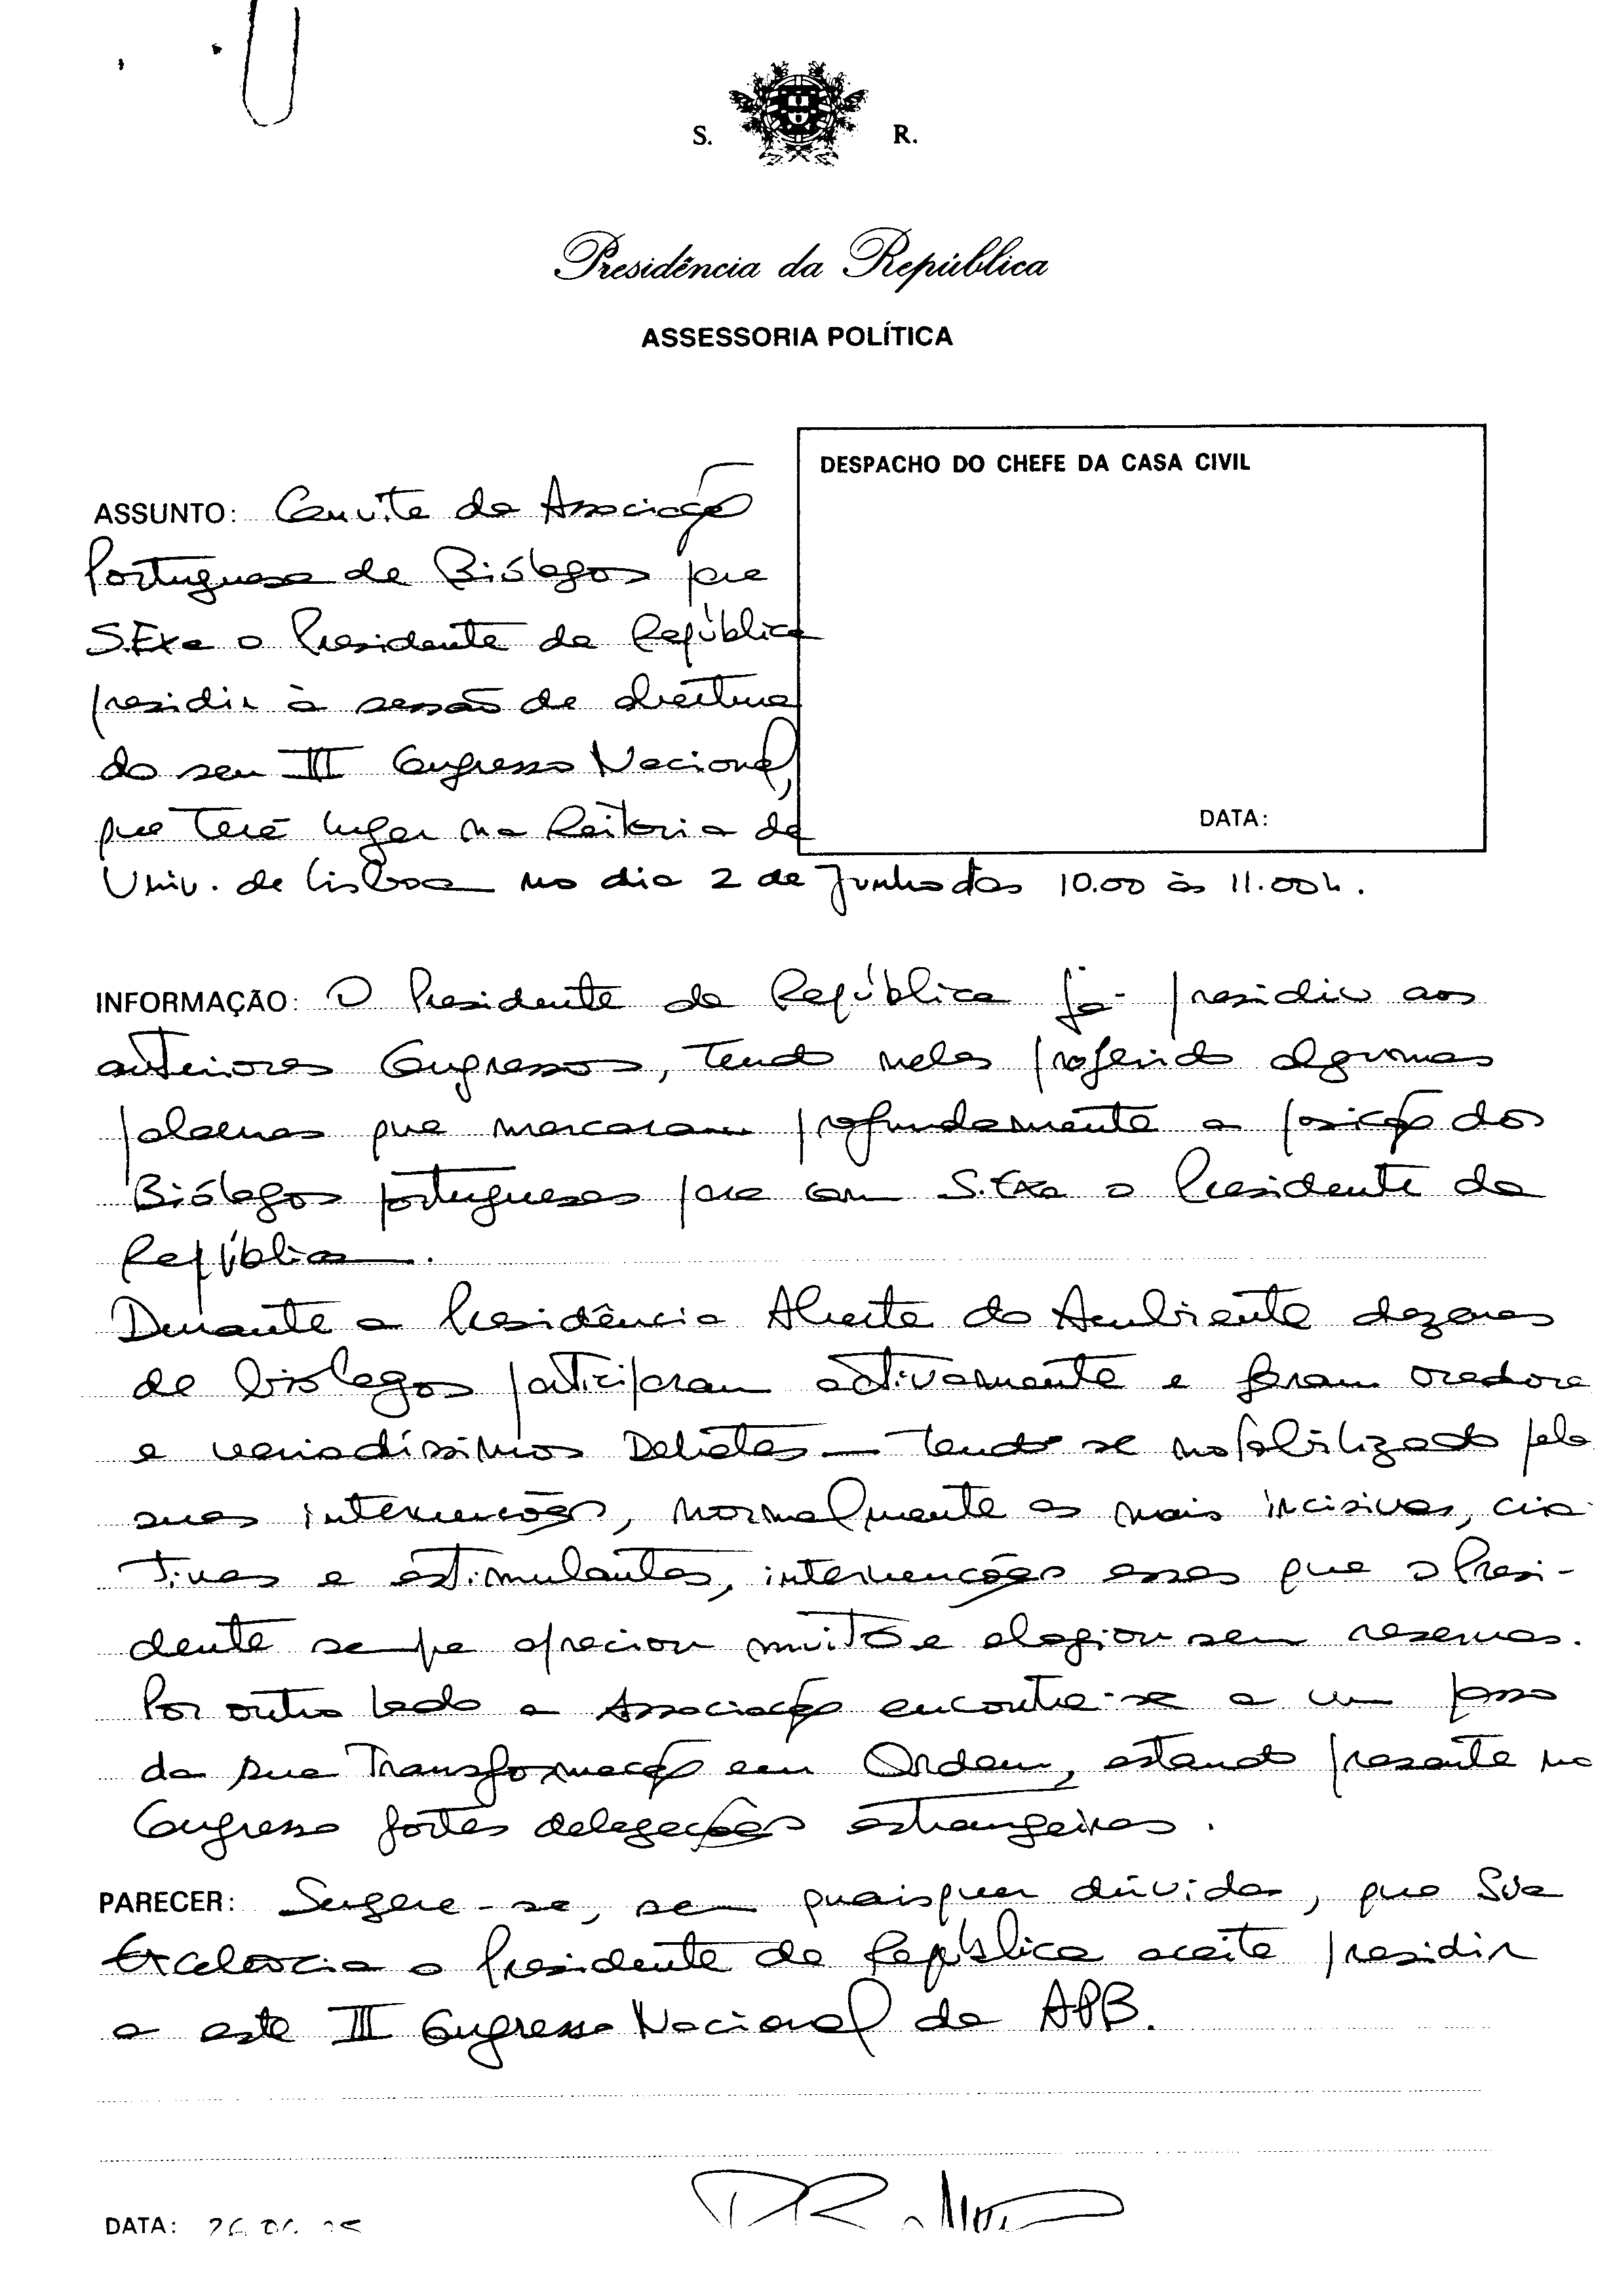 S. R.
Presidência da República
ASSESSORIA POLÍTICA
DESPACHO DO CHEFE DA CASA CIVIL
DATA:
ASSUNTO: Convite da Associação
Portuguesa de Biólogos pra
S.Exa o Presidente da República
presidir à sessão de abertura
do seu III Congresso Nacional,
que terá lugar na Reitoria da
Univ. de Lisboa no dia 2 de Junho das 10.00 às 11.00h.
INFORMAÇÃO: O Presidente da República já presidiu aos
anteriores Congressos, tendo neles proferido algumas
palavras que marcaram profundamente a posição dos
Biólogos portugueses para com S.Exa o Presidente da
República.
Durante a Presidência Aberta do Ambiente dezenas
de biólogos participaram activamente e foram oradore
e variadíssimos Debates – tendo se notabilizado pela
suas intervenções, normalmente as mais incisivas, cria
tivas e estimulantes, intervenções essas que o Presi-
dente sempre apreciou muito e elogiou sem reservas.
Por outro lado a Associação encontra-se a um passo
da sua Transformação em Ordem, estando presente no
Congresso fortes delegações estrangeiras.
PARECER: Sugere-se, sem quaisquer dúvidas, que Sua
Excelência o Presidente da República aceite presidir
a este III Congresso Nacional da APB.
DATA: 26.